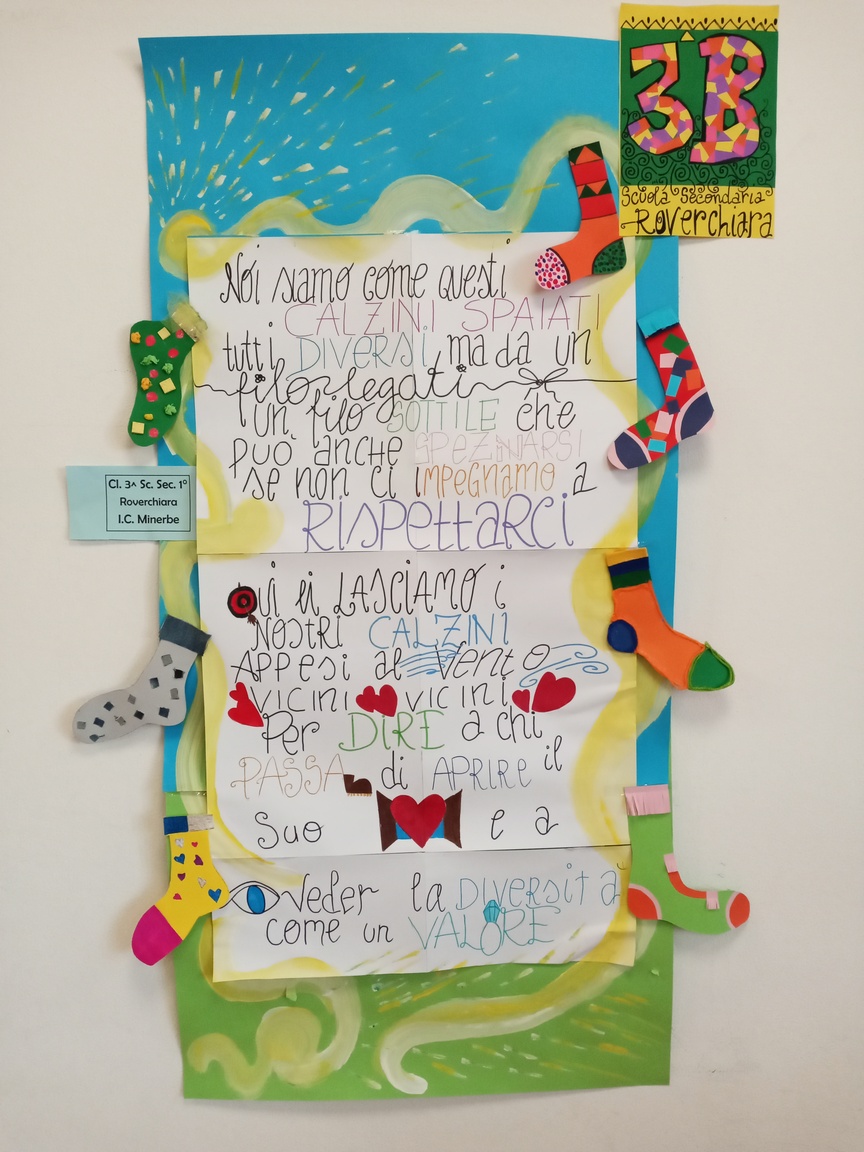 3B
Scuola Secondaria
Roverchiara
Noi siamo come questi
CALZINI SPAIATI
tutti DIVERSI ma da un
filo legati
un filo SOTTILE che
può anche SPEZZARSI
se non ci IMPEGNAMO a
RISPETTARCI
Cl. 3^ Sc. Sec. 1°
Roverchiara
I.C. Minerbe
Qui li LASCIAMO i
NOSTRI CALZINI
APPESI al vento
VICINI vicini
Per DIRE a chi
PASSA di APRIRE il
suo e a
veder la DIVERSITÀ
come un VALORE